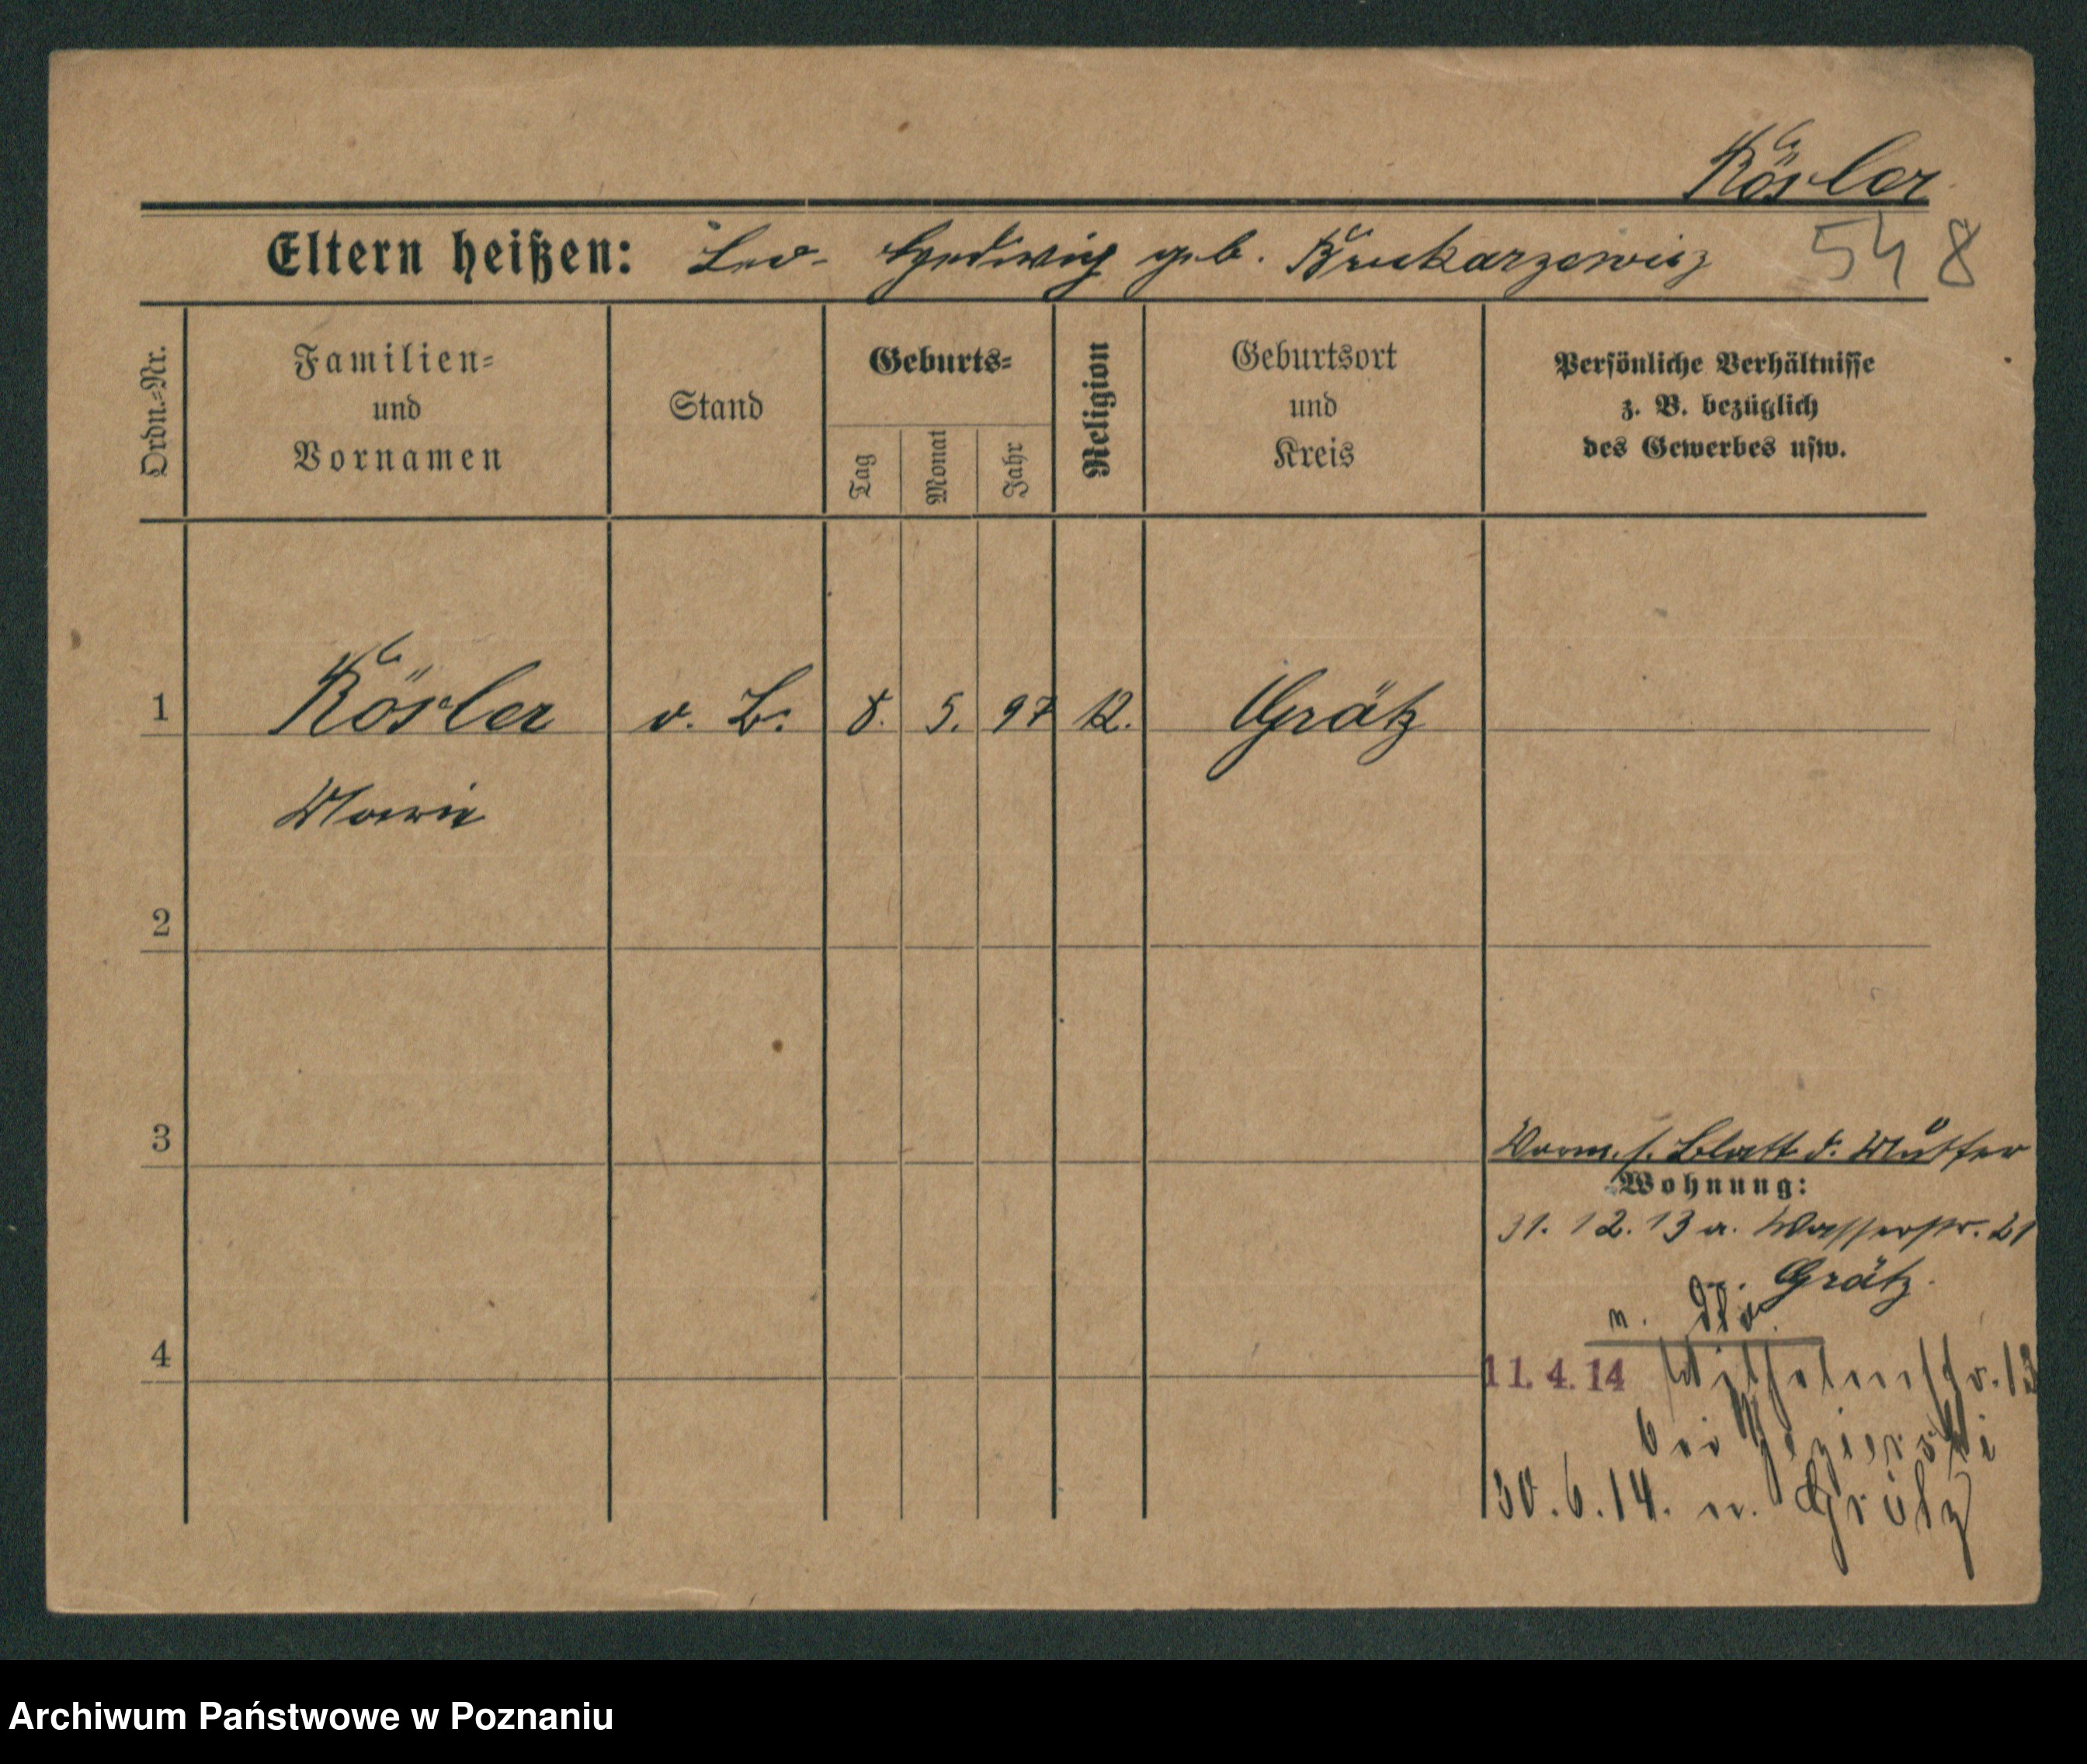 Rösler
Eltern heißen: Leo - Hedwig geb. Drukarzewicz 548
Ordn.-Nr.
Familien-
und
Vornamen
Stand
Geburts-
Tag
Monat
Jahr
Religion
Geburtsort
und
Kreis
Persönliche Verhältnisse
z. B. bezüglich
des Gewerbes usw.
1 Rösler o. B. 8. 5. 97 K. Grätz
Marie
2
3
Vorm. s. Blatt d. Mutter
Wohnung:
31. 12. 13 a. Wasserstr. 21
Grätz.
n.
4
11. 4. 14 Wilhelmstr. 13
bei
30. 6. 14. n. Grätz
Archiwum Państwowe w Poznaniu